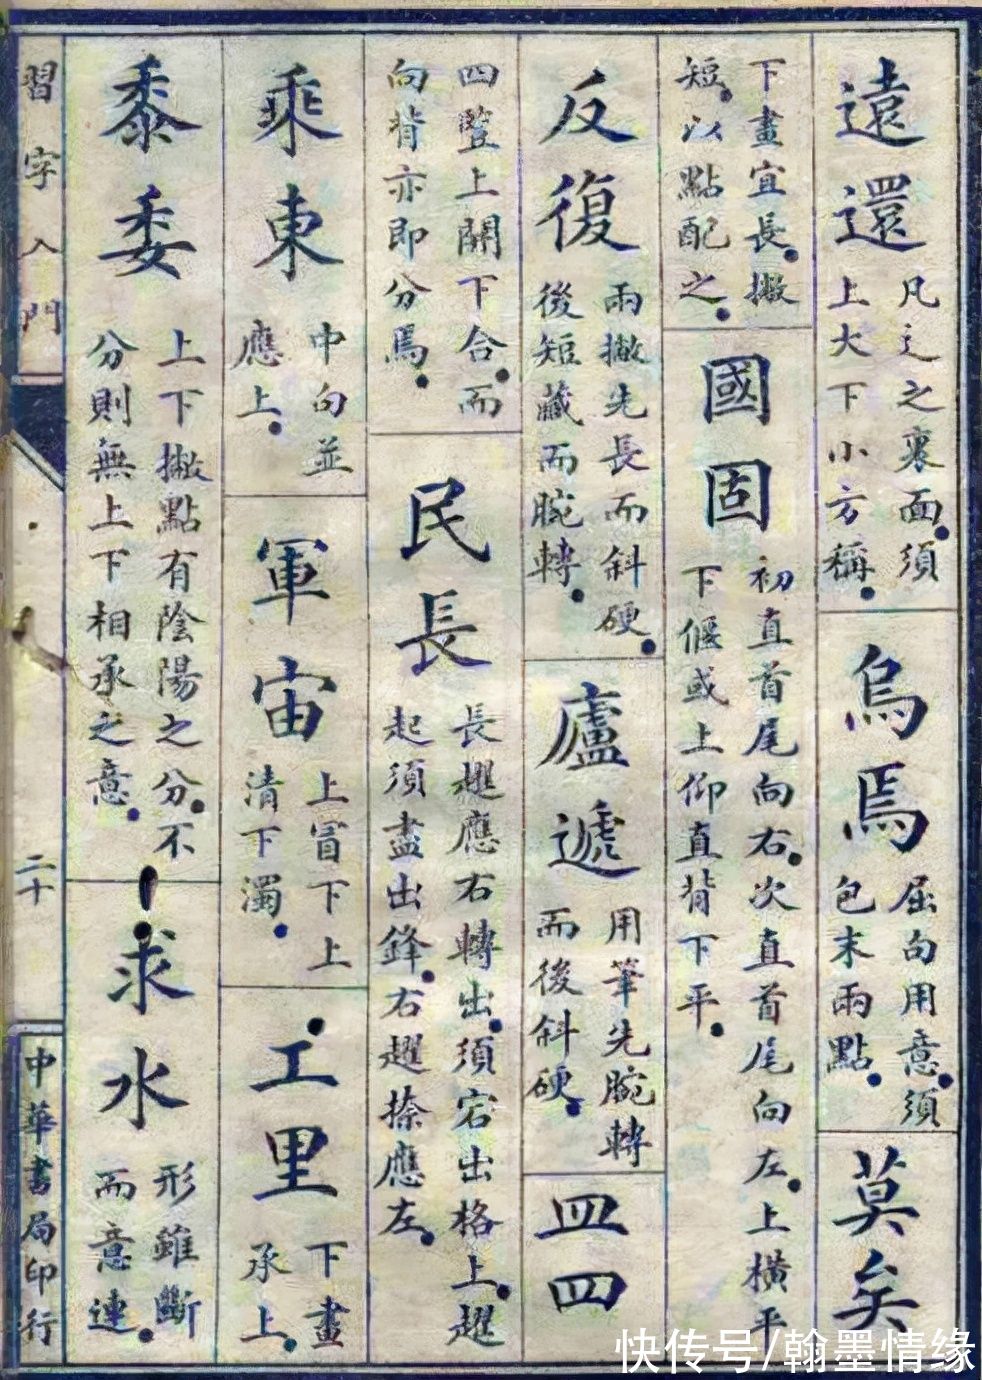 遠還
凡辶之裏面。須
上大下小方稱。
烏焉
屈句用意。須
包末兩點。
莫矣
下畫宜長。撇
短。以點配之。
國固
初直首尾向右。次直首尾向左。上橫平
下偃或上仰直背下平。
反復
兩撇先長而斜硬。
後短藏而腕轉。
廬遞
用筆先腕轉
而後斜硬。
皿四
四豎上開下合。而
向背亦即分焉。
民長
長趯應右轉出。須宕出格上。趯
起須盡出鋒。右趯捺應左。
乘東
中向並
應上。
軍宙
上冒下上
清下濁。
工里
下畫
承上。
黍委
上下撇點有陰陽之分。不
分則無上下相承之意。
求水
形雖斷
而意連。
習字入門
二十
中華書局印行
快传号/翰墨情缘